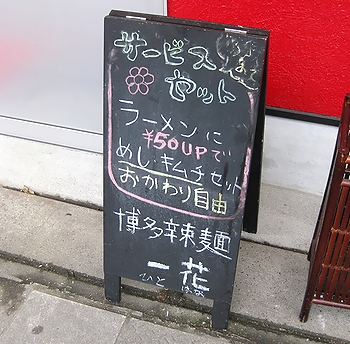 サービス
セット
ラーメンに
¥50UPで
めし・キムチセット
おかわり自由
博多辣麺
一花
ひと はな